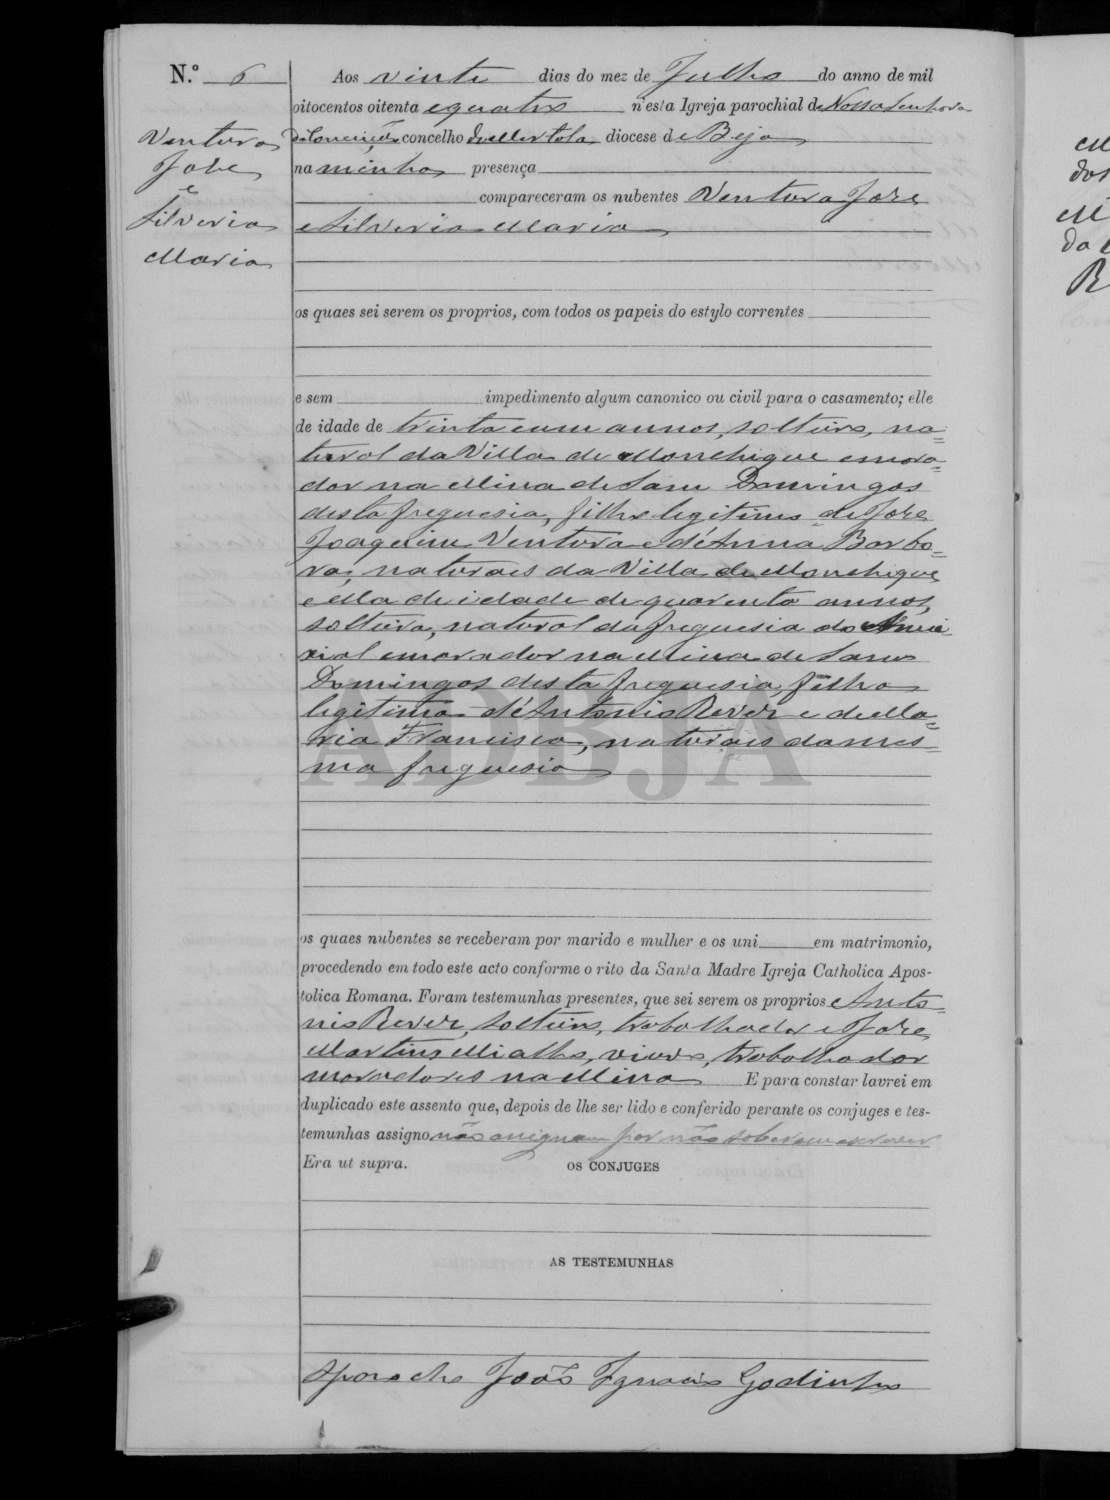 N.º 6
Ventura
José
e
Silveria
Maria
Aos vinte dias do mez de Julho do anno de mil
oitocentos oitenta e quatro n'esta Igreja parochial de Nossa Senhora
da Conceição concelho de Mertola, diocese de Beja
na minha presença
compareceram os nubentes Ventura José
e Silveria Maria
os quaes sei serem os proprios, com todos os papeis do estylo correntes
e sem impedimento algum canonico ou civil para o casamento; elle
de idade de trinta e um annos, solteiro, na=
tural da Villa de Monchique e mora=
dor na Mina de Sam Domingos
desta freguesia, filho legitimo de José
Joaquim Ventura e d'Anna Barbo=
ra, naturaes da Villa de Monchique
e ella de idade de quarenta annos,
solteira, natural da freguesia do Amei
xial e morador na Mina de Sam
Domingos desta freguesia, filha
legitima d'Antonio Rever e de Ma=
ria Francisca, naturaes da mes=
ma freguesia
ADBJA
os quaes nubentes se receberam por marido e mulher e os uni em matrimonio,
procedendo em todo este acto conforme o rito da Santa Madre Igreja Catholica Apos-
tolica Romana. Foram testemunhas presentes, que sei serem os proprios Anto=
nio Rever, solteiro, trabalhador e José
Martins Mialho, viuvo, trabalhador
moradores na Mina E para constar lavrei em
duplicado este assento que, depois de lhe ser lido e conferido perante os conjuges e tes-
temunhas assigno não assignam por não saberem escrever
Era ut supra.
OS CONJUGES
AS TESTEMUNHAS
O parocho João Ignacio Godinho